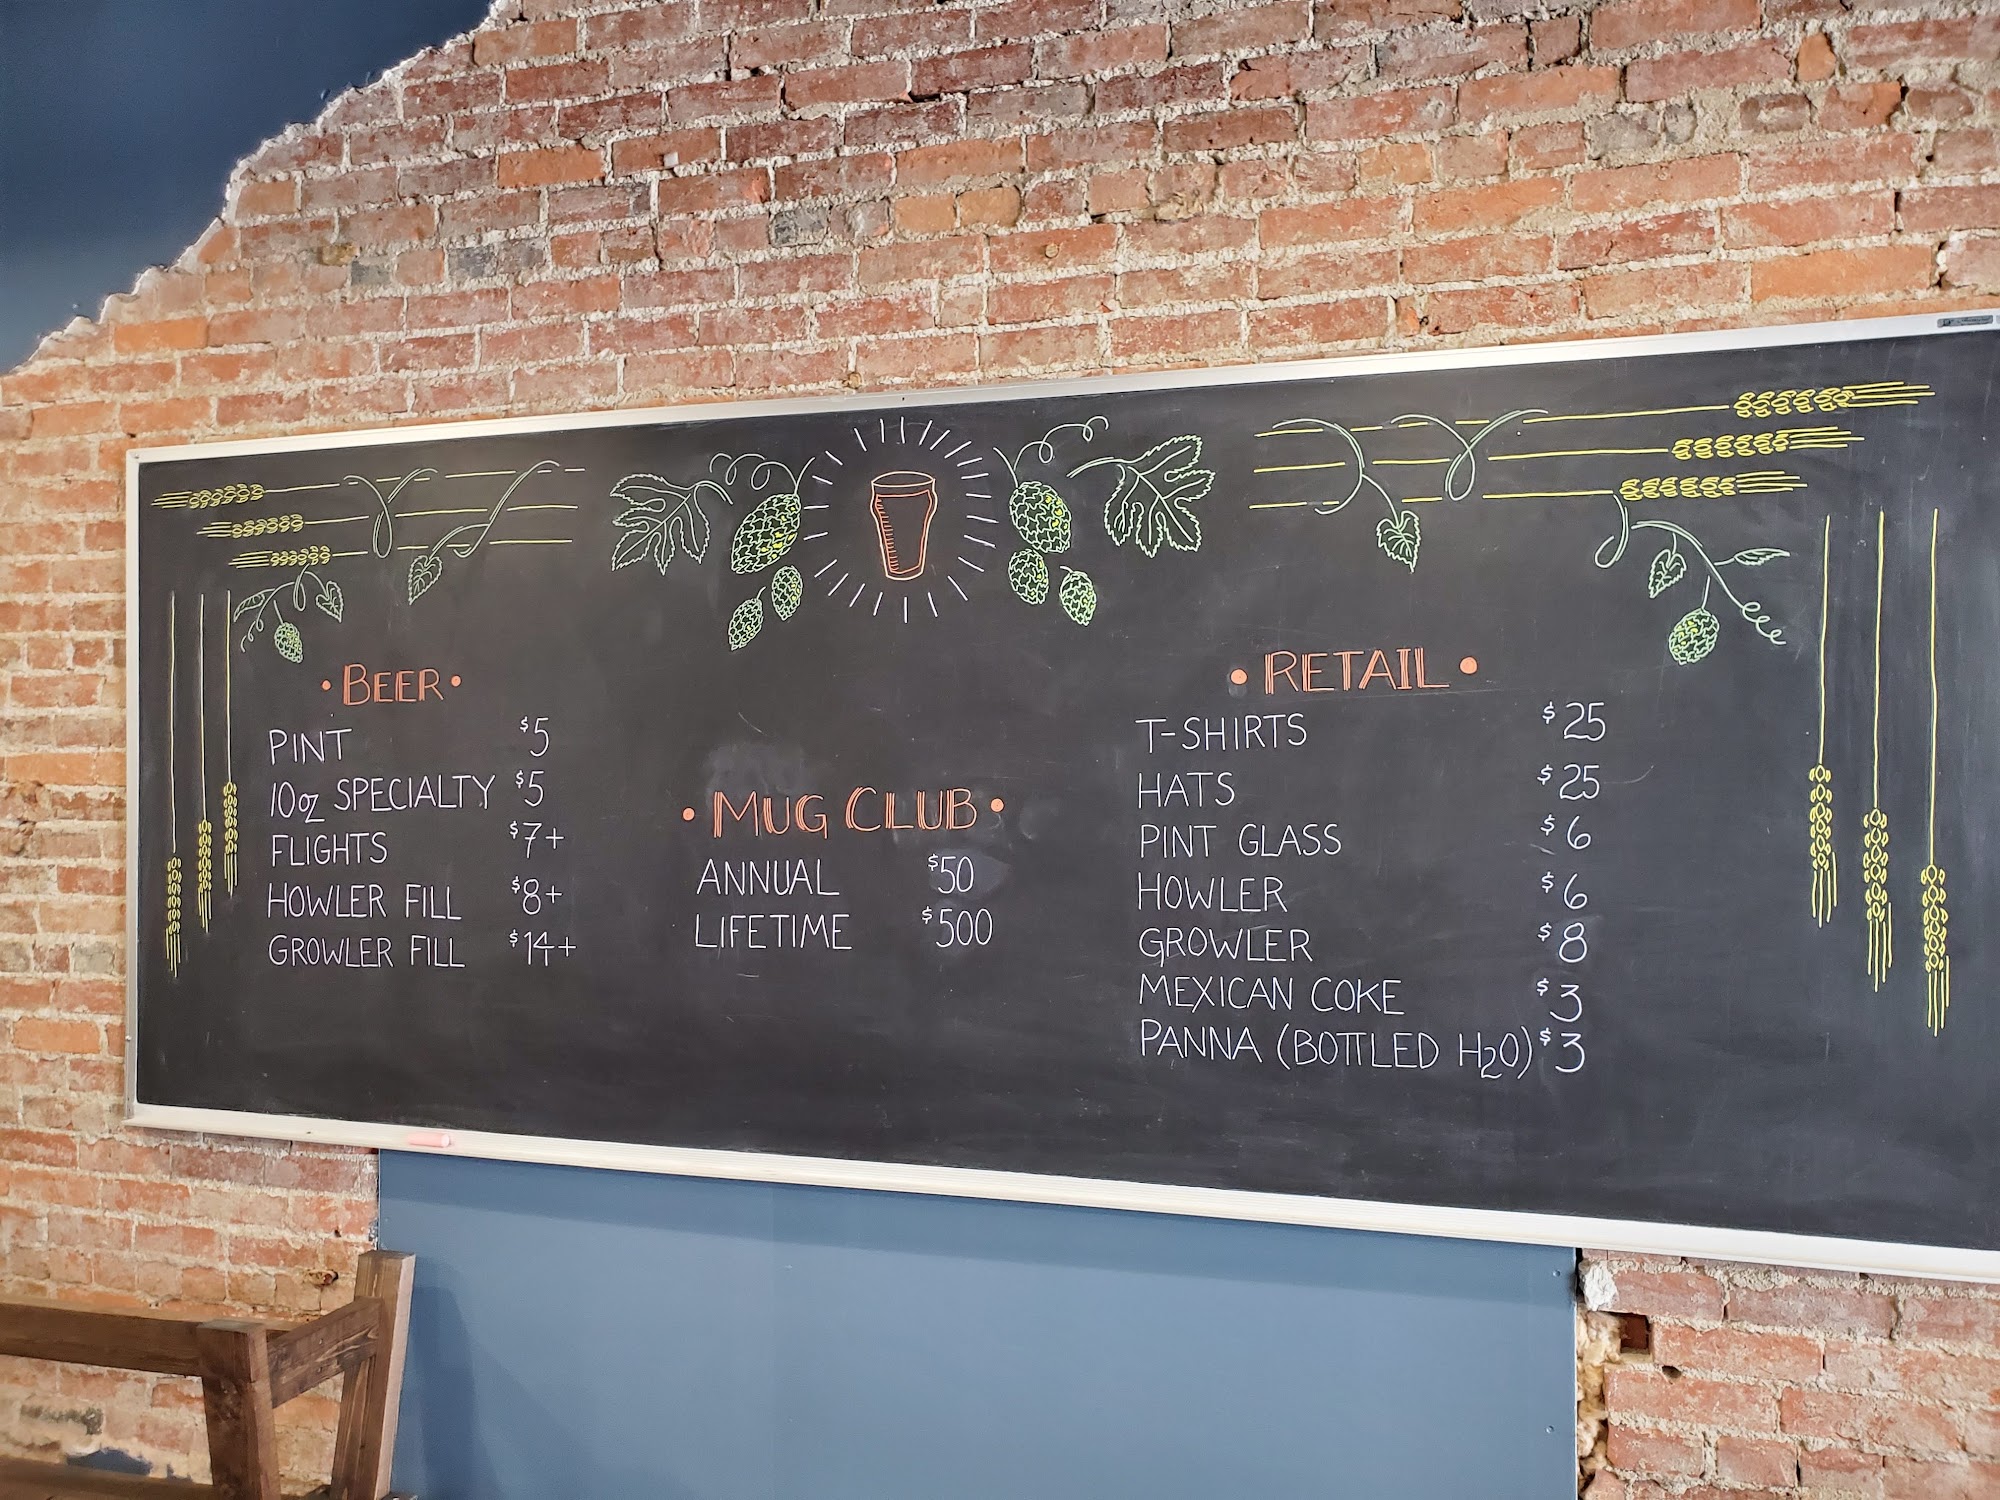 • BEER •
PINT $5
10oz SPECIALTY $5
FLIGHTS $7+
HOWLER FILL $8+
GROWLER FILL $14+
• MUG CLUB •
ANNUAL $50
LIFETIME $500
• RETAIL •
T-SHIRTS $25
HATS $25
PINT GLASS $6
HOWLER $6
GROWLER $8
MEXICAN COKE $3
PANNA (BOTTLED H2O) $3